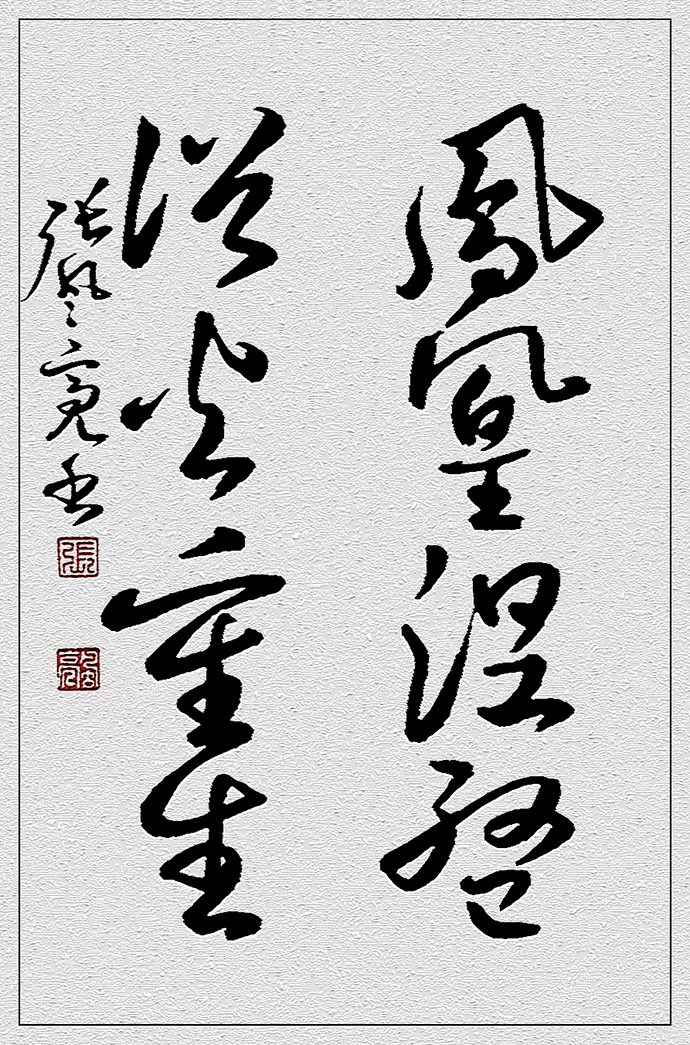 鳳凰涅槃
浴火重生
張亮书
張